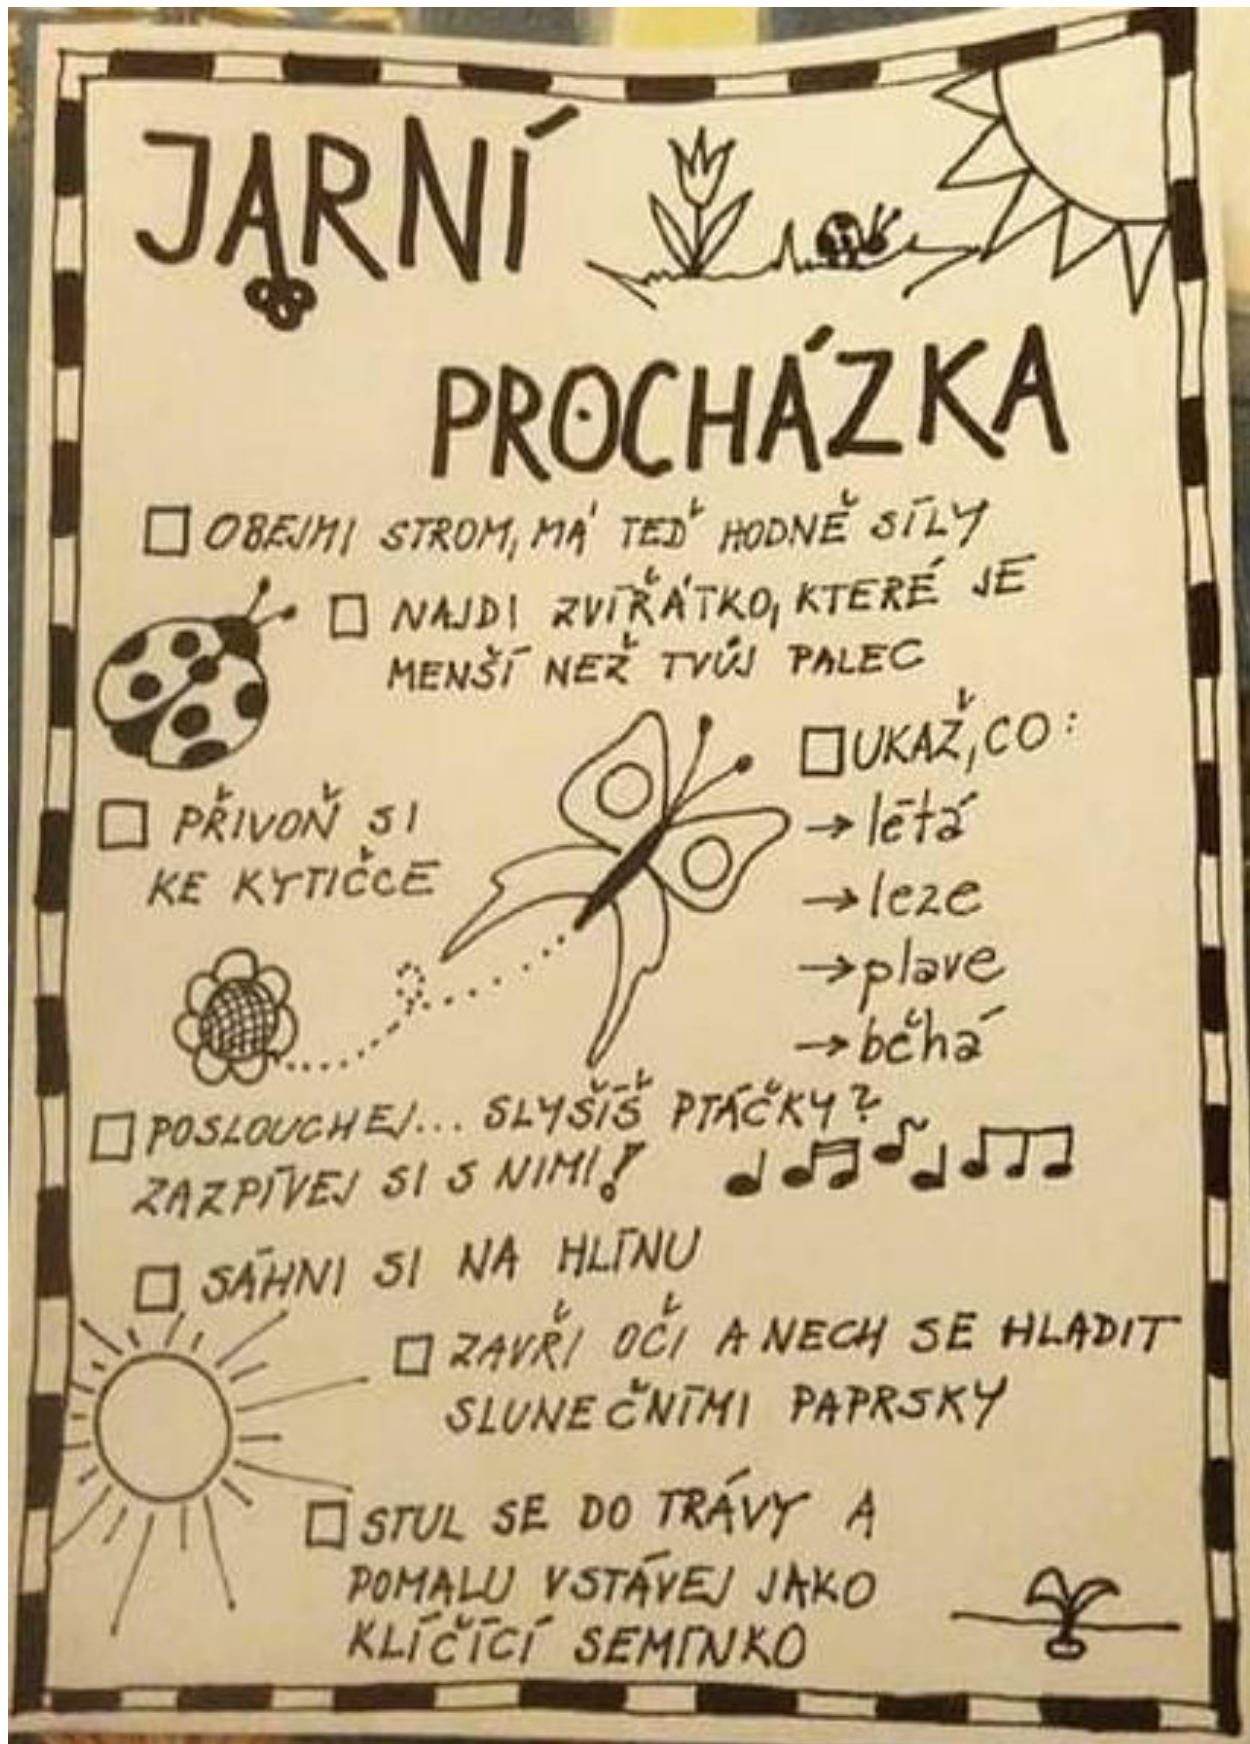 JARNÍ
PROCHÁZKA
OBEJMI STROM, MÁ TEĎ HODNĚ SÍLY
NAJDI ZVÍŘÁTKO, KTERÉ JE
MENŠÍ NEŽ TVŮJ PALEC
UKAŽ, CO:
→ létá
→ leze
→ plave
→ běhá
PŘIVOŇ SI
KE KYTIČCE
POSLOUCHEJ... SLYŠÍŠ PTÁČKY?
ZAZPÍVEJ SI S NIMI!
SÁHNI SI NA HLÍNU
ZAVŘI OČI A NECH SE HLADIT
SLUNEČNÍMI PAPRSKY
STUL SE DO TRÁVY A
POMALU VSTÁVEJ JAKO
KLÍČÍCÍ SEMÍNKO